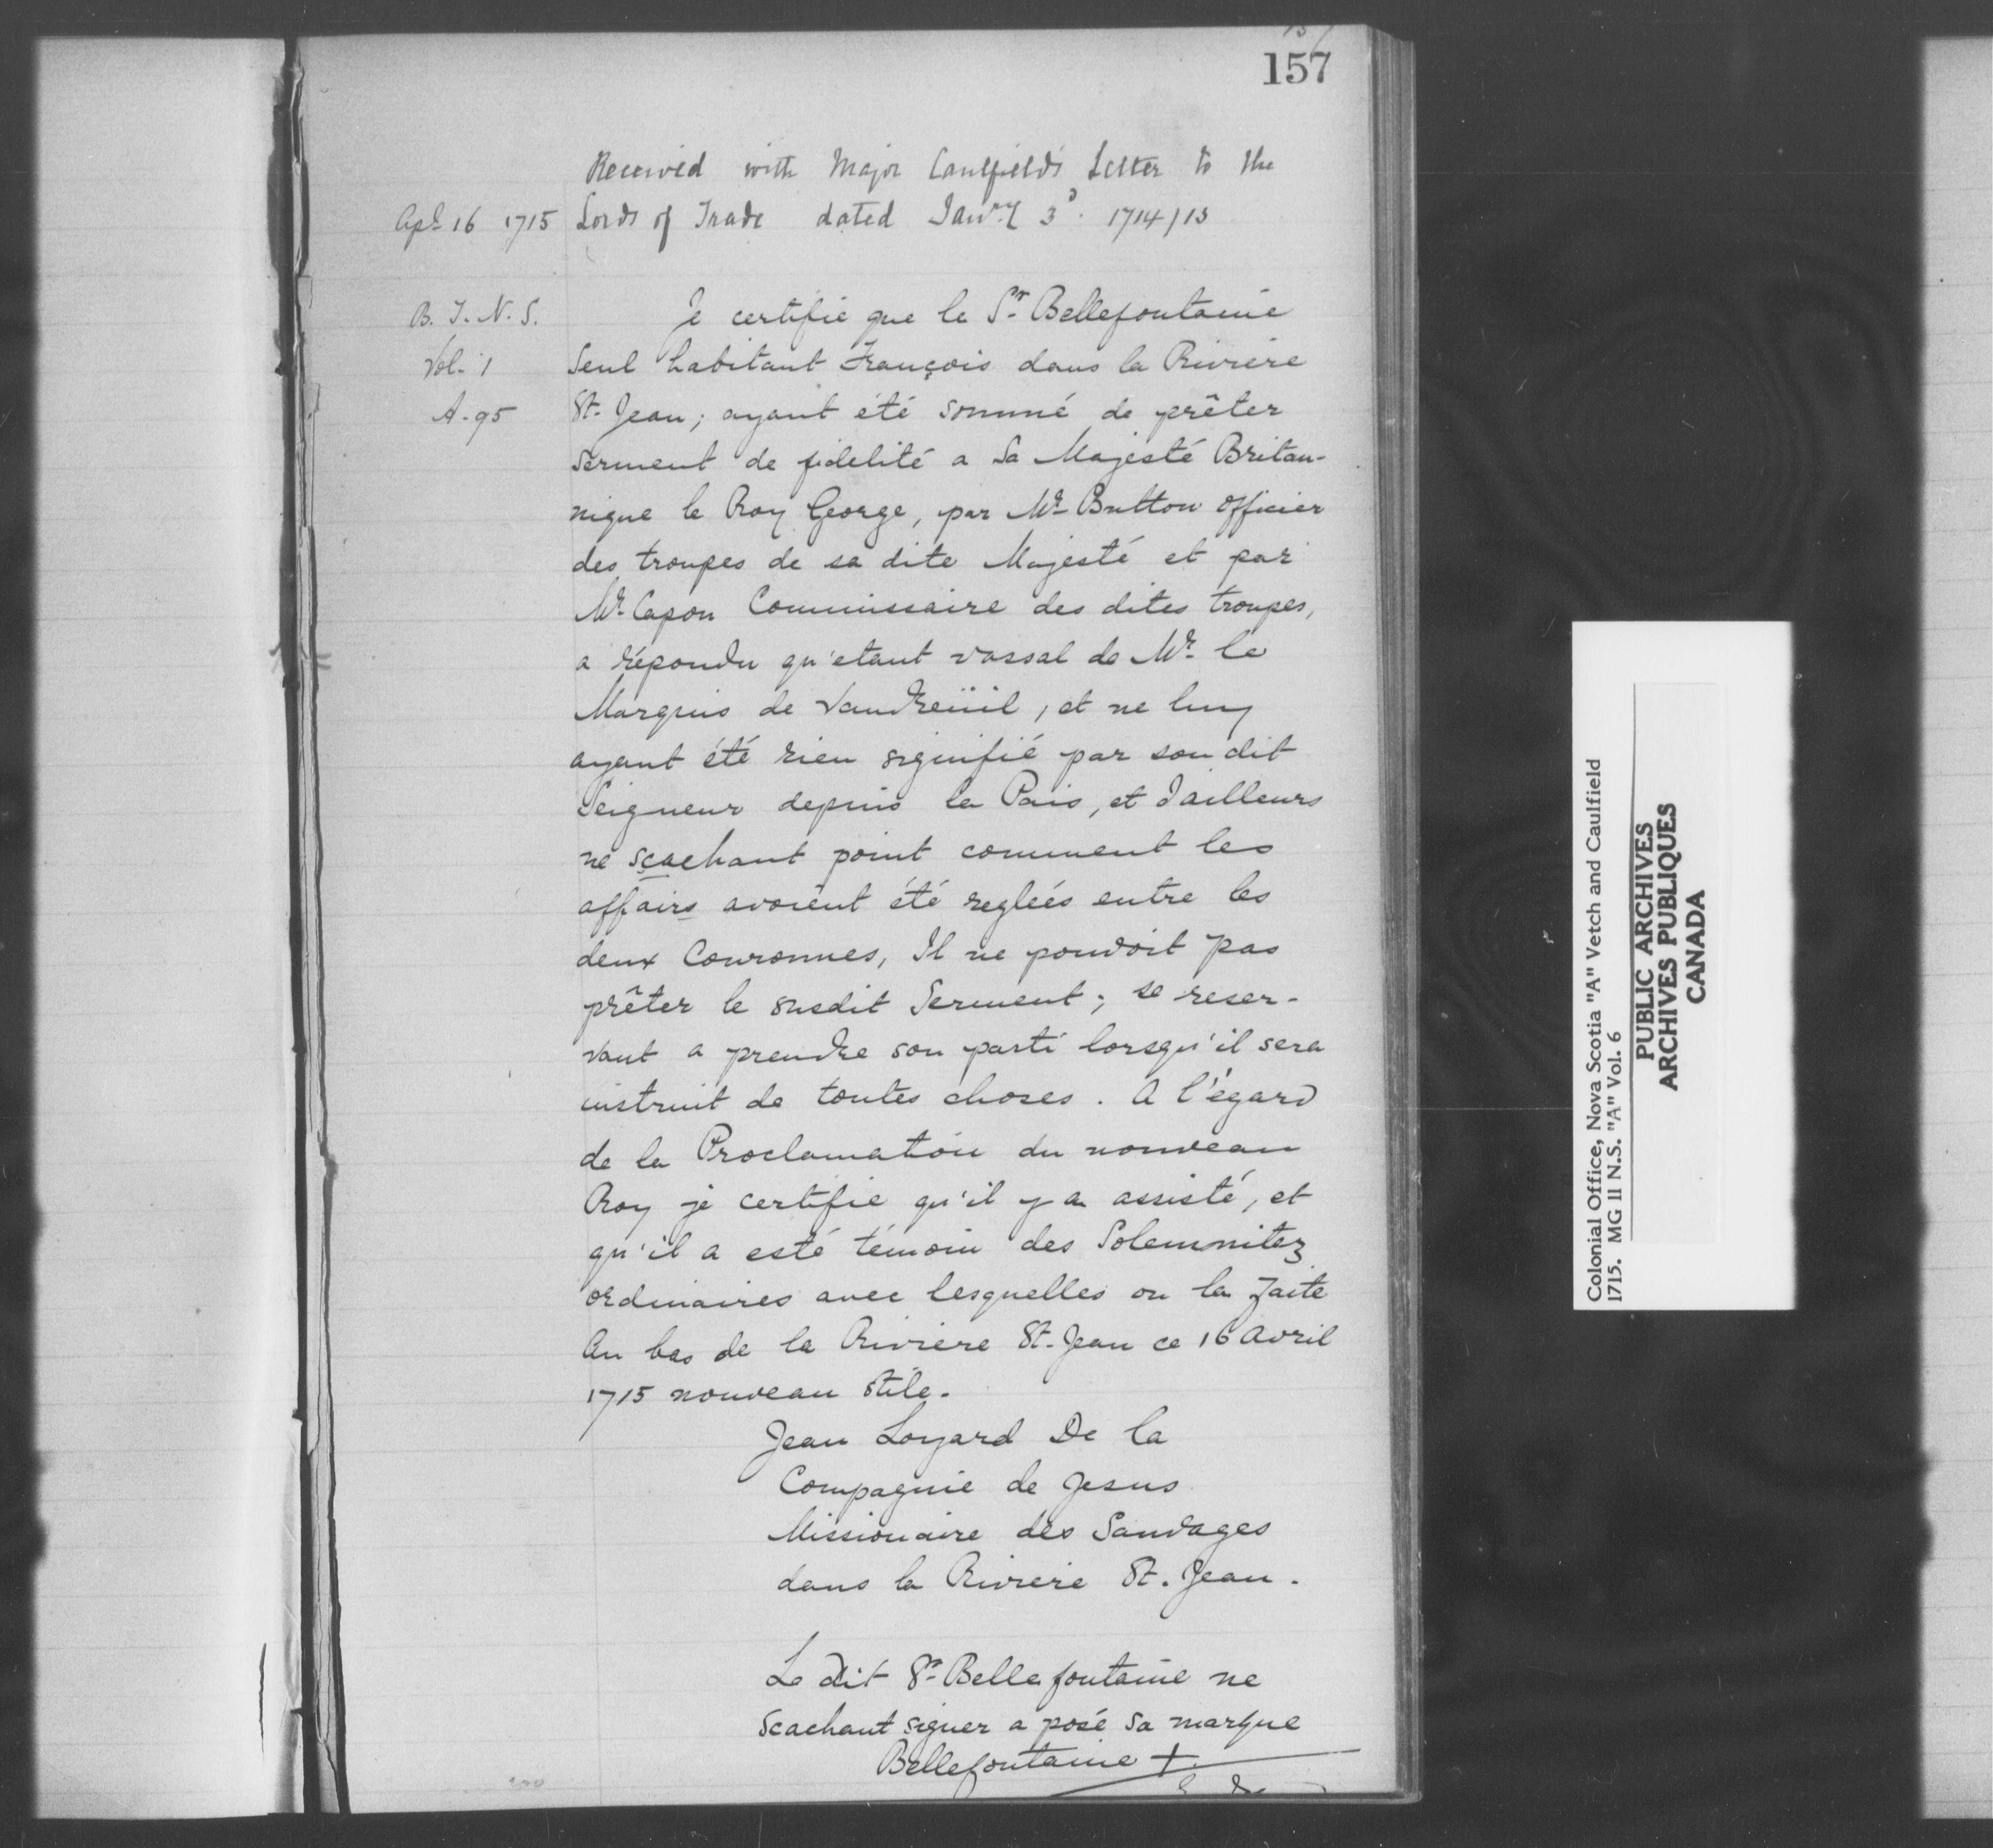 157
Received with Major Caulfield's Letter to the
Apl 16 1715 Lords of Trade dated Janry 3d. 1714/15
B. T. N. S.
Vol. 1
A. 95
Je certifie que le Sr. Bellefontaine
Seul habitant François dans la Riviere
St. Jean; ayant été sommé de prêter
Serment de fidelité a Sa Majesté Britan-
nique le Roy George, par Mr. Button officier
des troupes de sa dite Majesté et par
Mr. Capon Commissaire des dites troupes,
a répondu qu'etant vassal de Mr. le
Marquis de Vaudreüil, et ne luy
ayant été rien signifié par son dit
Seigneur depuis la Pais, et dailleurs
ne sçachant point comment les
affairs avoient été regleés entre les
deux Couronnes, Il ne pouvoit pas
prêter le susdit Serment; se reser-
vant a prendre son parti lorsqu'il sera
instruit de toutes choses. A l'égard
de la Proclamation du nouveau
Roy je certifie qu'il y a assisté, et
qu'il a esté témoin des Solemnitez
ordinaires avec lesquelles on la faite
Au bas de la Riviere St. Jean ce 16 Avril
1715 nouveau stile.
Jean Loyard De la
Compagnie de Jesus
Missionaire des Sauvages
dans la Riviere St. Jean.
Le dit Sr. Bellefontaine ne
Scachant signer a posé sa marque
Bellefontaine +
Colonial Office, Nova Scotia "A" Vetch and Caulfield
1715. MG 11 N.S. "A" Vol. 6
PUBLIC ARCHIVES
ARCHIVES PUBLIQUES
CANADA